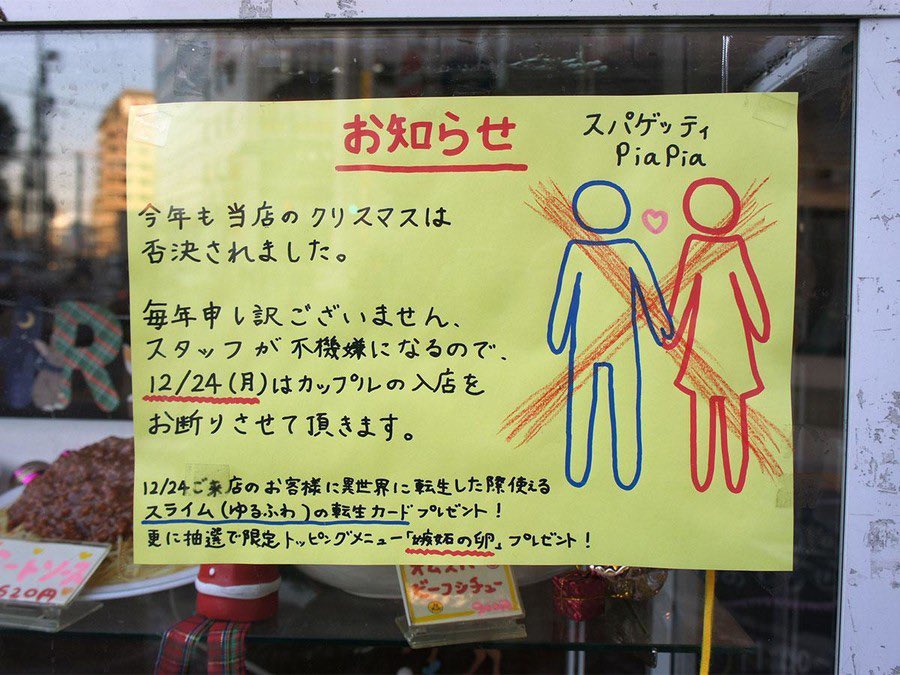 お知らせ
スパゲッティ
PiaPia
今年も当店のクリスマスは
否決されました。
毎年申し訳ございません、
スタッフが不機嫌になるので、
12/24(月)はカップルの入店を
お断りさせて頂きます。
12/24ご来店のお客様に異世界に転生した際使える
スライム(ゆるふわ)の転生カードプレゼント!
更に抽選で限定トッピングメニュー「嫉妬の卵」プレゼント!
R
ートソース
620円
オムスパ
ビーフシチュー
900円